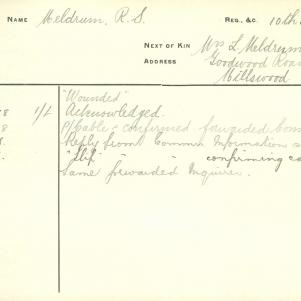 NAME Meldrum, R.S. REG. &C. 10th
NEXT OF KIN Mrs L. Meldrum
ADDRESS Goodwood Road
Millswood
"Wounded"
8 1/L Acknowledged.
8 P/Cable - confirmed forwarded Com
Reply from Common Information s
"Slip" " " confirming ca
Same forwarded Inquirer.